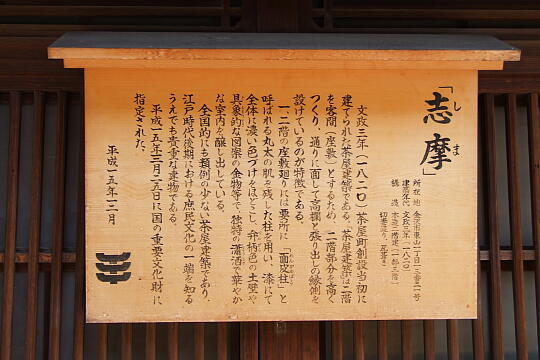 「志摩」
し ま
所在地 金沢市東山一丁目一三番二一号
建築年代 文政三年(一八二〇)
構造 木造二階建(一部三階)
切妻造り、瓦葺き
文政三年(一八二〇)茶屋町創設当初に
建てられた茶屋建築である。茶屋建築は二階
を客間(座敷)とするため、二階部分を高く
つくり、通りに面して高欄と張り出しの縁側を
設けているのが特徴である。
一、二階の座敷廻りには要所に「面皮柱」と
呼ばれる丸太の肌を残した柱を用い、漆にて
全体に濃い色づけをほどこし、弁柄色の土壁や
具象的な図案の金物等で、独特の瀟洒で華やか
な室内を醸し出している。
全国的にも類例の少ない茶屋建築であり、
江戸時代後期における庶民文化の一端を知る
うえでも貴重な建物である。
平成一五年一二月二五日に国の重要文化財に
指定された。
平成一五年一二月